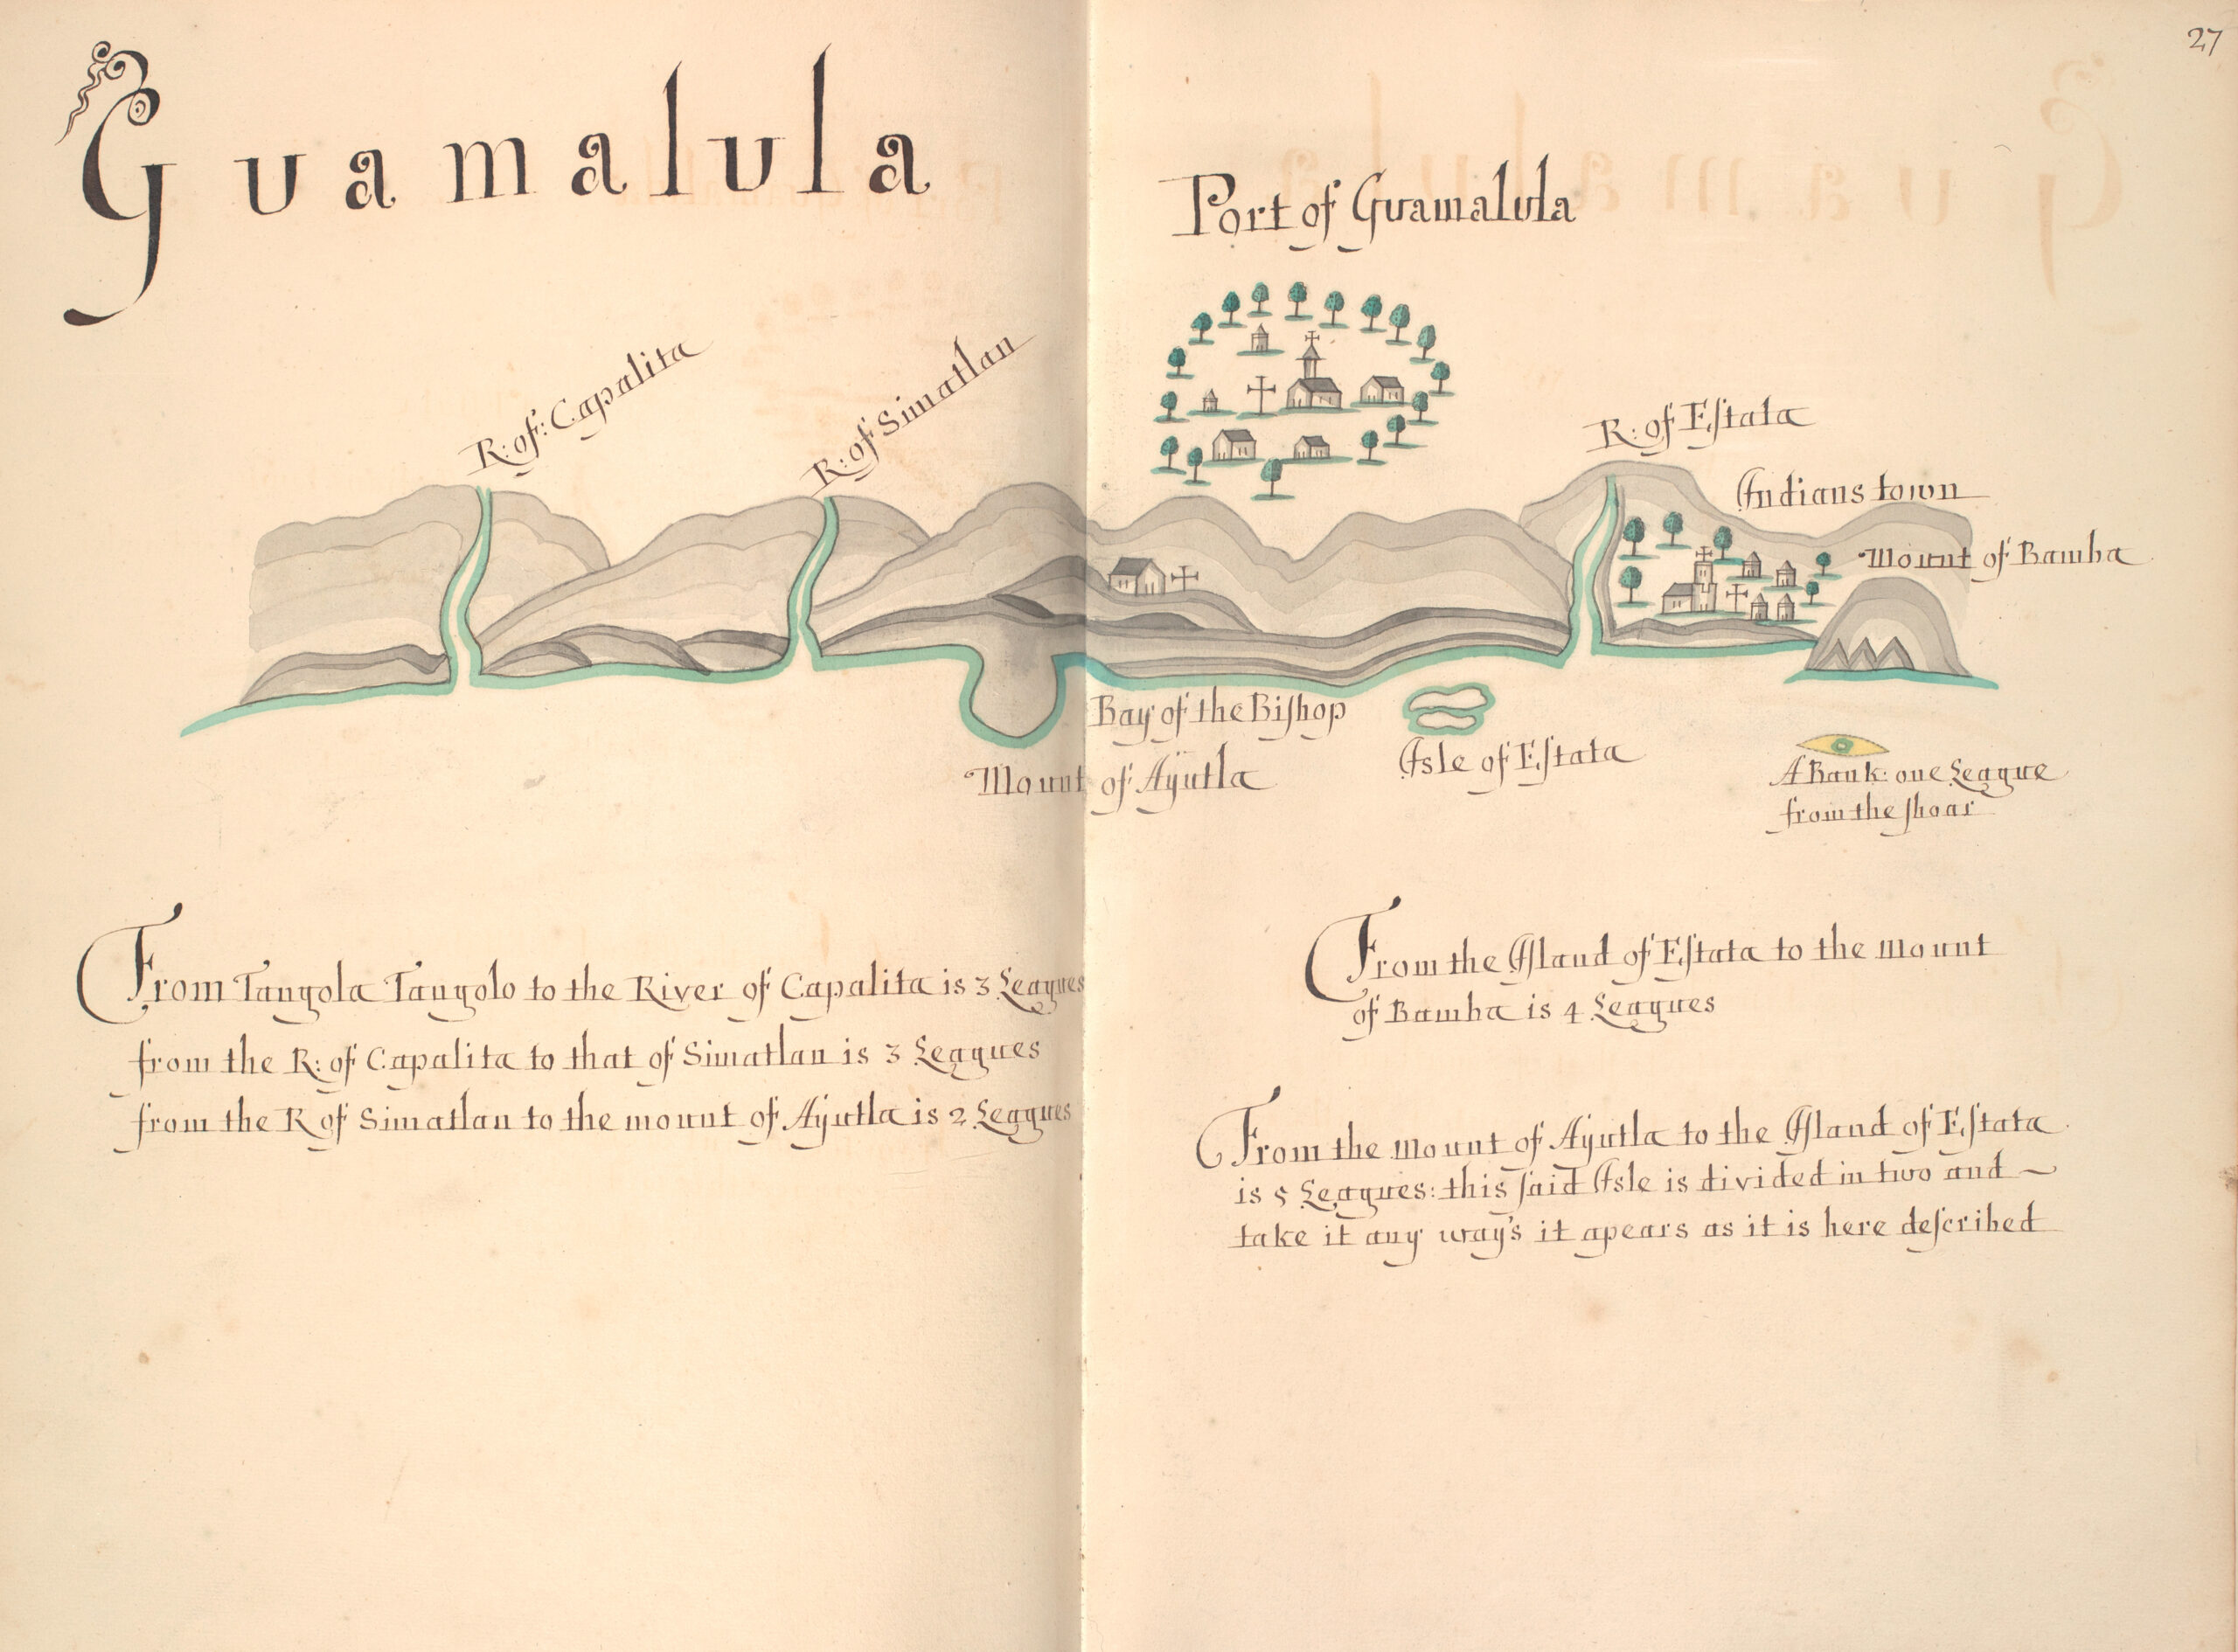 27
Guamalula
Port of Guamalula
R: of: Capalita
R: of Simatlan
R: of Estata
Indians town
Mount of Bamba
Bay of the Bishop
Mount of Ayutla
Isle of Estata
A Bank: one League
from the shoar
From Tangola Tangolo to the River of Capalita is 3 Leagues
from the R: of Capalita to that of Simatlan is 3 Leagues
from the R of Simatlan to the mount of Ayutla is 2 Leagues
From the Island of Estata to the mount
of Bamba is 4 Leagues
From the mount of Ayutla to the Island of Estata
is 5 Leagues: this said Isle is divided in two and ~
take it any way's it apears as it is here described